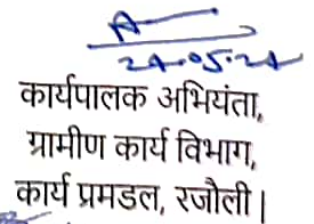 24.05.24
कार्यपालक अभियंता,
ग्रामीण कार्य विभाग,
कार्य प्रमडल, रजौली।